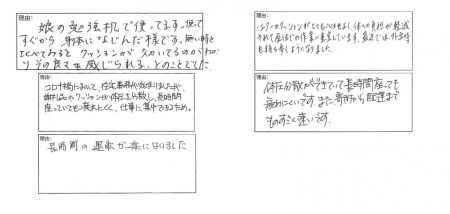 理由:
娘の勉強机で使ってます。使って
すぐから身体になじんだ様です。無い時と
比べてみると クッションが 欠かいてるのがわか
りその良さも感じられる。とのことでした
理由:
コロナ禍において、在宅勤務が始まりましたが、
クッションが体圧を分散し、長時間
座っていても疲れにくく、仕事に集中できるため。
理由:
長時間の運転が楽になりました。
理由:
クッションがとても心地よく、体への負担が軽減
されて座ってする作業に重宝しています。最近では、外出時
も持ち歩くようになりました。
理由:
体圧分散ができていて長時間座っても
疲れにくいです。また、寄附から配達まで
ものすごく速いです。